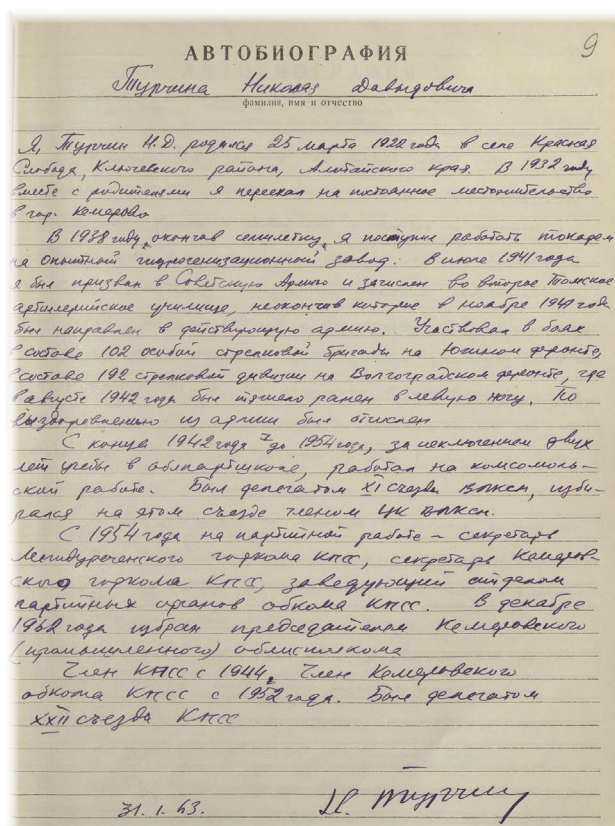 9
АВТОБИОГРАФИЯ
Турчина Николая Давыдовича
фамилия, имя и отчество
Я, Турчин Н.Д. родился 25 марта 1922 года в селе Красная
Слобода, Ключевского района, Алтайского края. В 1932 году
вместе с родителями я переехал на постоянное местожительство
в гор. Кемерово
В 1938 году, окончив семилетку, я поступил работать токарем
на опытный гидрогенизационный завод. В июле 1941 года
я был призван в Советскую Армию и зачислен во второе Томское
артиллерийское училище, неокончив которое в ноябре 1941 года
был направлен в действующую армию. Участвовал в боях
в составе 102 особой стрелковой бригады на Южном фронте,
в составе 192 стрелковой дивизии на Волгоградском фронте, где
в августе 1942 года был тяжело ранен в левую ногу. По
выздоровлению из армии был отчислен
С конца 1942 года и до 1954 года, за исключением двух
лет учебы в облпартшколе, работал на комсомоль-
ской работе. Был делегатом XI съезда ВЛКСМ, изби-
рался на этом съезде членом ЦК ВЛКСМ.
С 1954 года на партийной работе – секретарь
Междуреченского горкома КПСС, секретарь Кемеров-
ского горкома КПСС, заведующий отделом
партийных органов обкома КПСС. В декабре
1962 года избран председателем Кемеровского
(промышленного) облисполкома
Член КПСС с 1944, Член Кемеровского
обкома КПСС с 1952 года. Был делегатом
XXII съезда КПСС
31.1.63. Н. Турчин